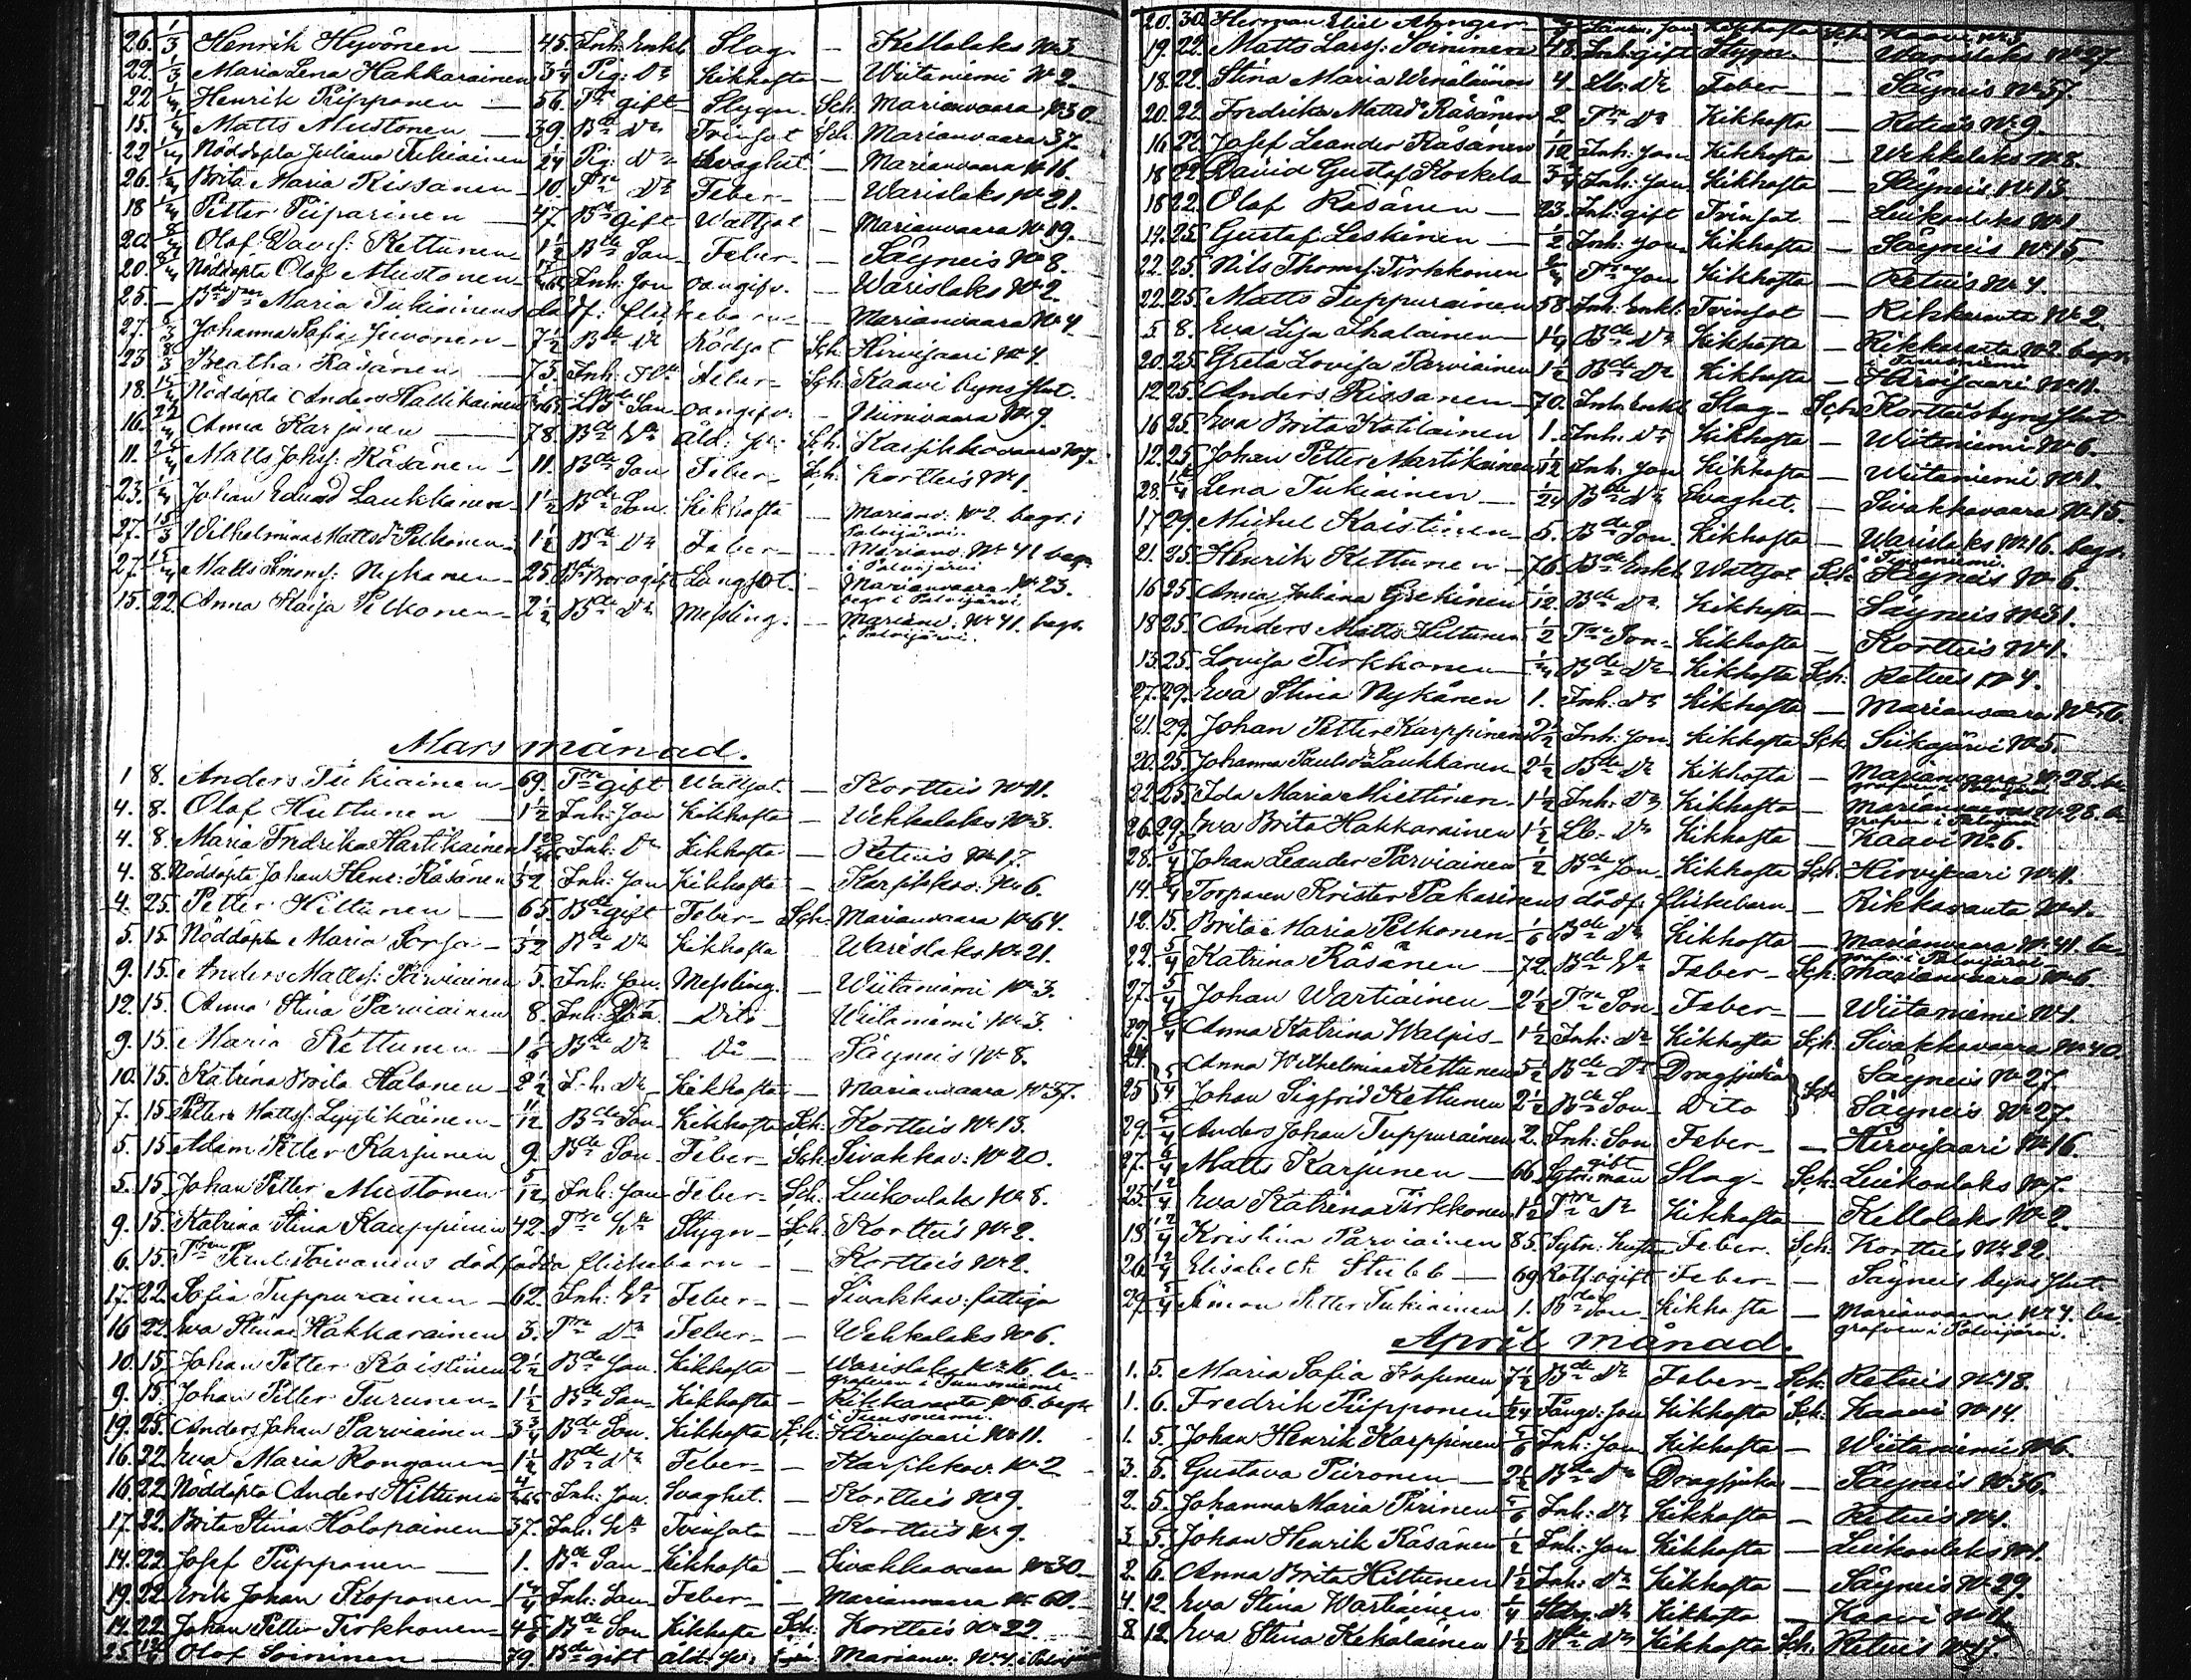 26. 1/3 Henrik Hyvönen — 45. Inh: Enkl Slag. — Kellolaks No 3
22. 1/3 Maria Lena Hakkarainen 3 1/4 Pig: Dr Kikhosta — Wiitaniemi No 2.
22 Henrik Piipponen — 56. Trn gift Stygn. Sch. Marianvaara No 30
15. Matts Mustonen — 39. Bde Dr Tvinsot Sch. Marianvaara 37.
22 Nöddöpta Juliana Tukiainen 1/24 Pig: Dr Svaghet — Marianvaara No 16.
26. Brita Maria Rissanen — 10. Trn Dr Feber — Warislaks No 21.
18 Petter Piiparinen — 47. Bde gift Wattsot — Marianvaara No 19.
20. Olof Davids: Kettunen 1 1/2 Bde Son Feber — Säyneis No 8.
20. Nöddöpta Olof Mustonen Inh: Son oangifv. — Warislaks No 2.
25. — Bde Dr Maria Tukiainens dödf: flickebarn — Marianvaara No 4
27. 8/3 Johanna Sofia Juvonen 7 1/2 Bde Dr Rödsot Sch. Hirvijaari No 4.
23 8/3 Beatha Räsänen — 73. Inh: Feber — Sch. Kaavi byns fatt.
18. Nöddöpta Anders Hallikainen Son oangifv. — Niinivaara No 9.
16. Anna Karjunen — 78. Bde Ea åld: sv: Sch. Karsikkovaara No 7.
11. Matts Johs: Räsänen — 11. Bde Son Feber — Sch. Kortteis No 1.
23. Johan Eduard Laukkanen 1 1/2 Bde Son Kikhosta — Marianv: No 2. begr. i
Polvijärvi.
27. 15/3 Wilhelmina Mattsd: Pelkonen 1 1/2 Bde Dr Feber — Marianv: No 41 begr.
i Polvijärvi
27. Matts Simons: Nykänen — 25. Bde Bror ogift Lungsot. — Marianvaara No 23.
begr i Polvijärvi
15. 22. Anna Kaisa Pelkonen — 2 1/2 Bde Dr Messling. — Marianv: No 41. begr.
i Polvijärvi.
Mars månad.
1 8. Anders Tukiainen — 69. Trn gift Wattsot — Kortteis No 11.
4. 8. Olof Huttunen — 1 1/2 Inh: Son Kikhosta — Wehkalaks No 3.
4. 8. Maria Fredrika Hartikainen Inh: Dr Kikhosta — Retuis No 17.
4. 8. Nöddöpta Johan Henr: Räsänen 1/52 Inh: Son Kikhosta — Karsikkov: No 6.
4. 25. Petter Hiltunen — 65. Bde gift Feber — Sch. Marianvaara No 64.
5. 15 Nöddöpta Maria Sorsa — 1/52 Bde Dr Kikhosta Warislaks No 21.
9. 15. Anders Matts: Parviainen 5. Inh: Son Messling. — Wiitaniemi No 3.
12. 15. Anna Stina Parviainen 8. Inh: Dr — Dito — Wiitaniemi No 3.
9. 15. Maria Kettunen — 1 1/6 Bde Dr Do — Säyneis No 8.
10. 15. Katrina Brita Halonen — 2 1/2 Inh: Dr Kikhosta — Marianvaara No 37.
7. 15 Petter Matts: Lyytikäinen — 11/12 Bde Son Kikhosta Sch. Kortteis No 13.
5. 15 Adam Petter Karjunen 9. Bde Son Feber — Sch. Sivakkav: No 20.
5. 15. Johan Petter Mustonen 5/12 Inh: Son Feber — Sch. Luikonlaks No 8.
9. 15. Katrina Stina Kauppinen 42. Trn Ha Stygn — Sch. Kortteis No 2.
6. 15. Trn Paul Toivanens dödfödda flickebarn — Kortteis No 2.
17. 22. Sofia Tuppurainen — 62. Inh: Ea Feber — Sivakkav: fattiga
16 22 Eva Stina Hakkarainen 3. Trn Dr Feber — Wehkalaks No 6.
10. 15. Johan Petter Koistinen 2 1/2 Bde Son Kikhosta — Warislaks No 16 be-
grafven i Tuusniemi
9. 15. Johan Petter Turunen — 1 1/2 Bde Son Kikhosta — Rikkaranta No 6. begr
i Tuusniemi.
19. 25. Anders Johan Parviainen 3 3/4 Bde Son Kikhosta Sch. Hirvijaari No 11.
16. 22. Eva Maria Ronganen 1 1/2 Bde Dr Feber — Karsikkov. No 2
16. 22. Nöddöpta Anders Hiltunen Inh: Son Svaghet. — Kortteis No 9.
17. 22. Brita Stina Holopainen 37. Inh: Ha Tvinsot — Kortteis No 9.
14. 22. Josef Piipponen — 1. Bde Son Kikhosta — Sivakkavaara No 30
19. 22 Erik Johan Koponen — Inh: Son Feber — Marianvaara No 60.
14. 22. Johan Petter Tirkkonen Bde Son Kikhosta Sch: Kortteis No 22.
25. Olof Soininen — 79. Bde gift åld: sv: Marianv: No 4. i Polvij
20. 30. Herman Eliel Ahnger Son Kikhosta Sch. Kaavi No 5
19. 22. Matts Lars: Soininen 48. Inh: gift Stygn — Warislaks No 27
18. 22. Stina Maria Wenäläinen 4. Lb: Dr Feber — Säyneis No 57.
20. 22. Fredrika Mattsd: Räsänen 2 Trn Dr Kikhosta — Retuis No 9.
16. 22. Josef Leander Räsänen 1/12 Inh: Son Kikhosta — Wehkalaks No 8.
18 22. David Gustaf Koskelo Inh: Son Kikhosta — Säyneis No 13.
18 22. Olof Räsänen — 23. Inh: gift Tvinsot — Luikonlaks No 1
14. 25. Gustaf Leskinen — 1/2 Inh: Son Kikhosta — Säyneis No 15
22. 25. Nils Thoms: Tirkkonen Trn Son Kikhosta — Retuis No 4.
22. 25. Matts Tuppurainen 58. Inh: Enkl: Tvinsot — Rikkaranta No 2.
5. 8. Eva Lisa Ihalainen — 1 1/4 Bde Dr Kikhosta — Rikkaranta No 2 begr.
i Tuusniemi
20. 25. Greta Lovisa Parviainen 1 1/2 Bde Dr Kikhosta — Hirvijaari No 11.
12. 25. Anders Rissanen — 70. Inh: Enkl Slag — Sch. Kortteis byns fatt
16 25. Eva Brita Kotilainen 1. Inh: Dr Kikhosta — Wiitaniemi No 6.
12. 25. Johan Petter Martikainen 1/12 Inh: Son Kikhosta — Wiitaniemi No 1.
28. Lena Tukiainen — 1/24 Bde Dr Svaghet. — Sivakkavaara No 15.
17 29. Mickel Koistinen — 5. Bde Son Kikhosta — Warislaks No 16. begr.
i Tuusniemi.
21. 25. Henrik Kettunen — 76. Bde Enkl. Wattsot Sch. Säyneis No 6.
16 25. Anna Juliana Gröhinen 1/12. Bde Dr Kikhosta — Säyneis No 31.
18 25. Anders Matts Hiltunen 1/2 Trn Son Kikhosta — Kortteis No 1.
13. 25. Lovisa Tirkkonen — Bde Dr Kikhosta Sch. Retuis No 4.
27. 29. Eva Stina Nykänen 1. Inh: Dr Kikhosta — Marianvaara No 56
21. 29. Johan Petter Karppinen 2 1/2 Inh: Son Kikhosta Sch. Siikajärvi No 5.
20. 25. Johanna Paulsdr Laukkanen 2 1/2 Bde Dr Kikhosta — Marianvaara No 28. be-
grafven i Polvijärvi
22. 25. Ida Maria Miettinen — 1 1/2 Inh: Dr Kikhosta — Marianvaara No 28. be-
grafven i Polvijärvi
26. 29. Eva Brita Hakkarainen 1 1/2 Lb: Dr Kikhosta — Kaavi No 6.
28. Johan Leander Parviainen 1/2 Bde Son Kikhosta Sch. Hirvijaari No 11.
14. Torparen Krister Pakarinens dödf. flickebarn — Rikkaranta No 4.
12. 15. Brita Maria Pelkonen 1/6 Bde Dr Kikhosta — Marianvaara No 41. be-
grafv: i Polvijärvi
22. 5/4 Katrina Räsänen — 72. Bde Ea Feber — Sch. Marianvaara No 6.
27. 5/4 Johan Wartiainen — 2 1/2 Trn Son Feber — Wiitaniemi No 1.
29. Anna Katrina Walpis — 1 1/2 Inh: Dr Kikhosta Sch. Sivakkavaara No 40.
24. Anna Wilhelmina Kettunen 5 1/2 Bde Dr Dragsjuka Säyneis No 27
25 Johan Sigfrid Kettunen 2 1/2 Bde Son Dito Sch Säyneis No 27.
29. 5/4 Anders Johan Tuppurainen 2. Inh: Son Feber — Hirvijaari No 16.
27. Matts Karjunen — 66. Sytn: gift man Slag — Sch. Luikonlaks No 7.
25. 12/4 Eva Katrina Tirkkonen 1 1/2 Trn Dr Kikhosta — Kellolaks No 2.
18. 12/4 Kristina Parviainen 85. Sytn: hustru Feber. Sch. Kortteis No 22.
26. 12/4 Elisabeth Stubb — 69 Rotf. ogift Feber — Säyneis byns fatt.
29. 5/4 Simon Petter Tukiainen 1. Bde Son Kikhosta — Marianvaara No 4. be-
grafven i Polvijärvi.
April månad.
1. 5. Maria Sofia Kosunen 7 1/2 Bde Dr Feber — Sch. Retuis No 18.
1. 6. Fredrik Piipponen Son Kikhosta Sch. Kaavi No 14.
1. 5. Johan Henrik Karppinen Inh: Son Kikhosta — Wiitaniemi No 6.
3. 5. Gustava Piironen — 2 1/2 Bde Dr Dragsjuka — Säyneis No 36.
2. 5. Johanna Maria Pirinen Inh: Dr Kikhosta — Retuis No 4.
3. 5. Johan Henrik Räsänen 1/2 Inh: Son Kikhosta — Luikonlaks No 1.
2. 6. Anna Brita Hiltunen 1 1/2 Inh: Dr Kikhosta — Säyneis No 29.
4. 12. Eva Stina Wartiainen 1/4 Dr Kikhosta — Kaavi No 4
8. 12. Eva Stina Kekäläinen 1 1/2 Bde Dr Kikhosta Sch. Retuis No 17.